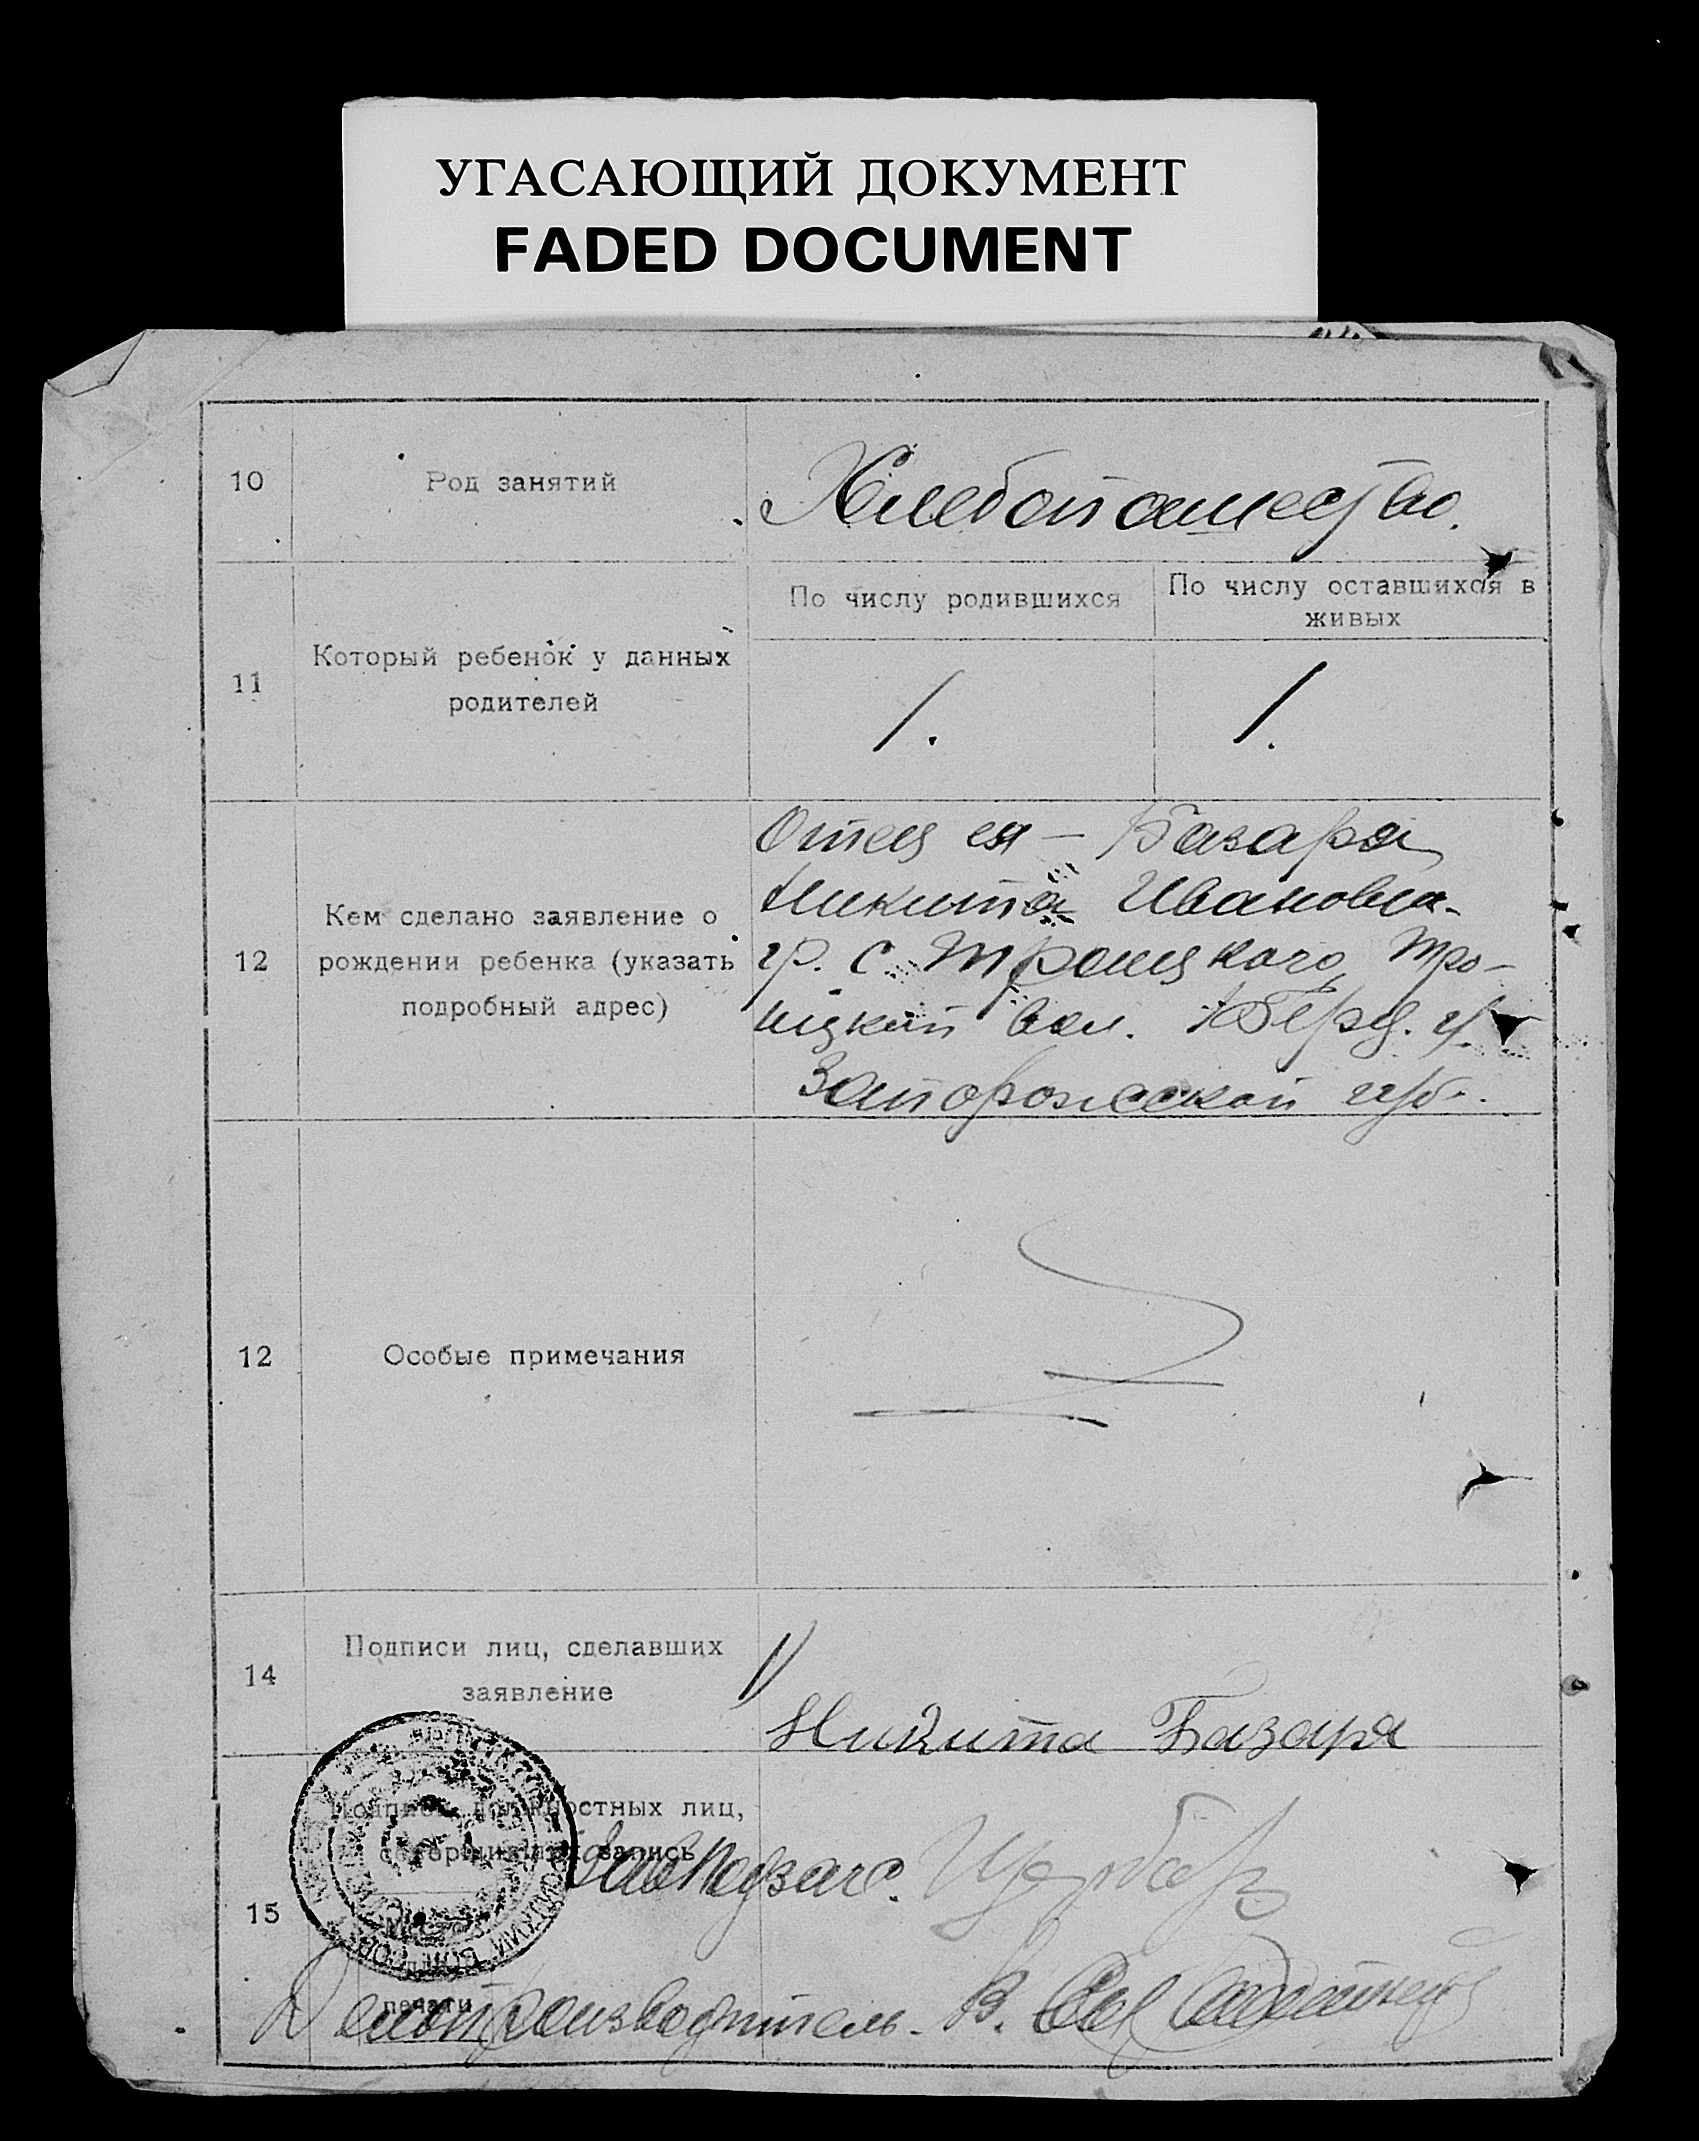 УГАСАЮЩИЙ ДОКУМЕНТ
FADED DOCUMENT
10
Род занятий
Хлебопашество.
11
Который ребенок у данных
родителей
По числу родившихся
По числу оставшихся в
живых
1.
1.
12
Кем сделано заявление о
рождении ребенка (указать
подробный адрес)
Отец ея – Базаря
Никита Иванович
гр. с. Троицкого, Тро-
ицкой вол. Берд. у.
Запорожской губ.
12
Особые примечания
14
Подписи лиц, сделавших
заявление
1)
Никита Базаря
15
Подписи должностных лиц,
запись
печати
Завподзагс. Щербак
Делопроизводитель. В.